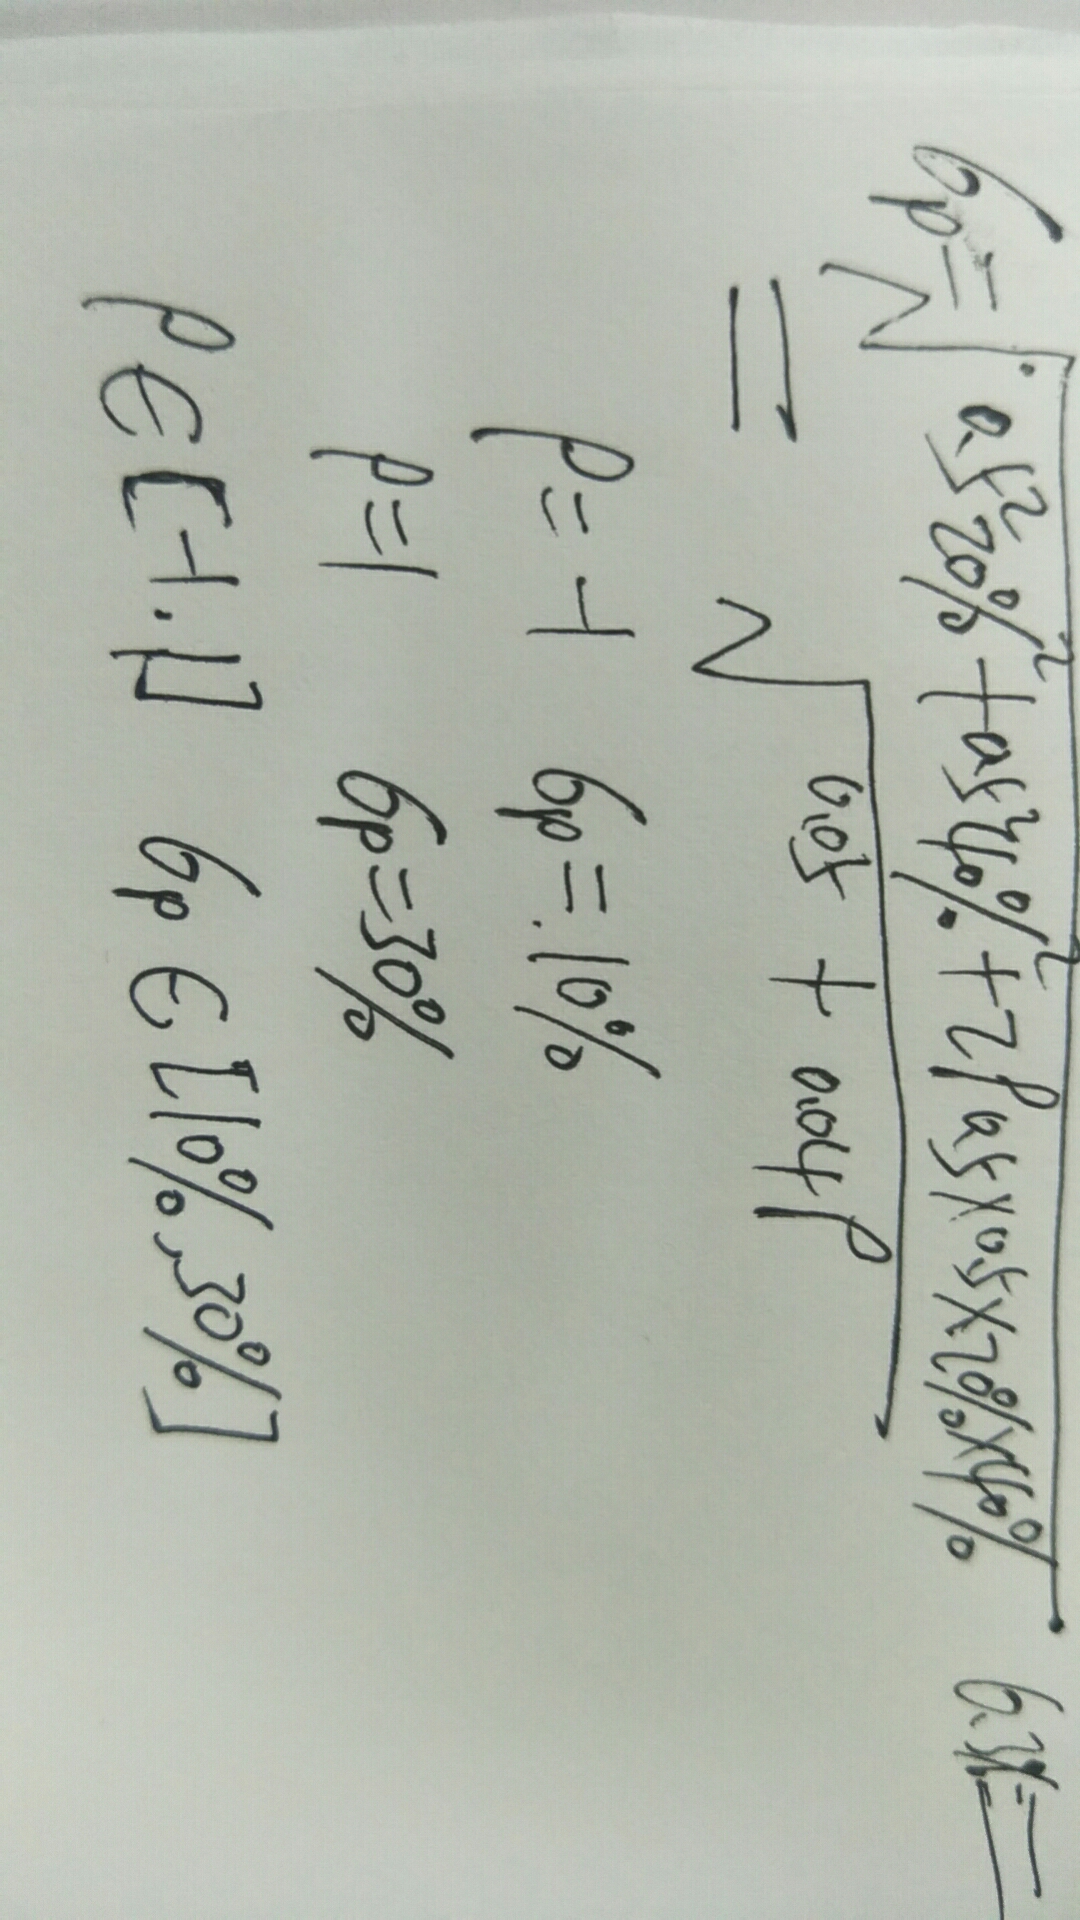 σp=√0.5²20%²+0.5²40%²+2ρ0.5×0.5×20%×40%
= √0.05+0.04ρ
ρ=-1 σp=10%
ρ=1 σp=30%
ρ∈[-1.1] σp∈[10%,30%]